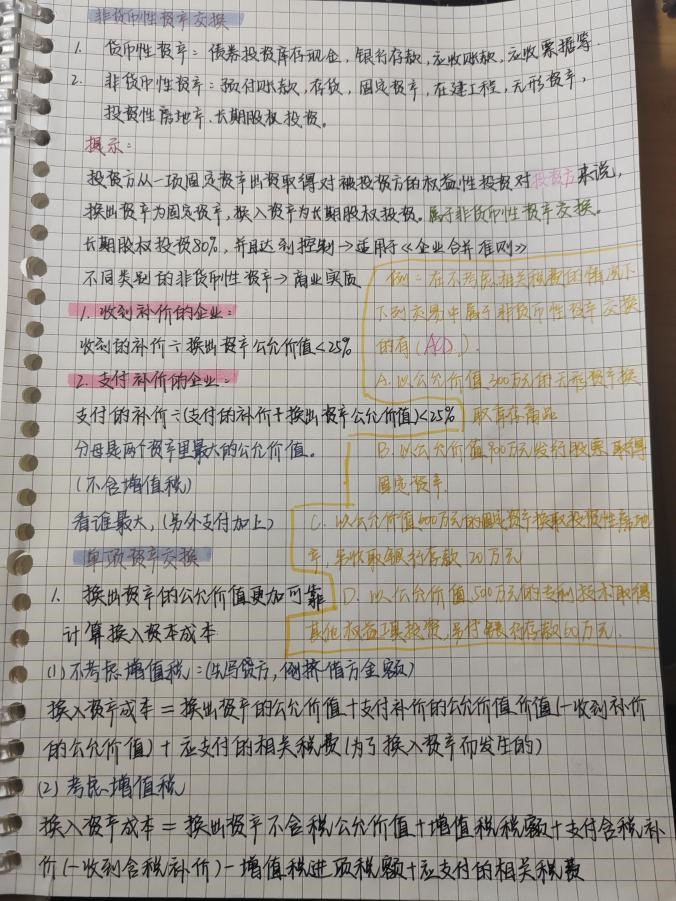 非货币性资产交换
1. 货币性资产：债券投资库存现金，银行存款，应收账款，应收票据等.
2. 非货币性资产：预付账款，存货，固定资产，在建工程，无形资产，
投资性房地产、长期股权投资。
提示：
投资方从一项固定资产出资取得对被投资方的权益性投资对投资方来说，
换出资产为固定资产，换入资产为长期股权投资。属于非货币性资产交换。
长期股权投资80%，并且达到控制→适用于《企业合并准则》
不同类别的非货币性资产→商业实质
1. 收到补价的企业：
收到的补价÷换出资产公允价值<25%
2. 支付补价的企业：
支付的补价÷(支付的补价+换出资产公允价值)<25%
分母是两个资产里最大的公允价值。
(不含增值税)
看谁最大，(另外支付加上)
例：在不考虑相关税费的情况下
下列交易中属于非货币性资产交换
的有(ACD.).
A. 以公允价值300万元的无形资产换
取库存商品
B. 以公允价值900万元发行股票取得
固定资产.
C. 以公允价值400万元的固定资产换取投资性房地
产，另收取银行存款20万元
D. 以公允价值500万元的专利技术取得
其他权益工具投资，另付银行存款60万元.
单项资产交换
1. 换出资产的公允价值更加可靠
计算换入资本成本
(1) 不考虑增值税：(先写贷方，倒挤借方金额)
换入资产成本=换出资产的公允价值+支付补价的公允价值价值(-收到补价
的公允价值)+应支付的相关税费(为了换入资产而发生的)
(2) 考虑增值税
换入资产成本=换出资产不含税公允价值+增值税税额+支付含税补
价(-收到含税补价)-增值税进项税额+应支付的相关税费